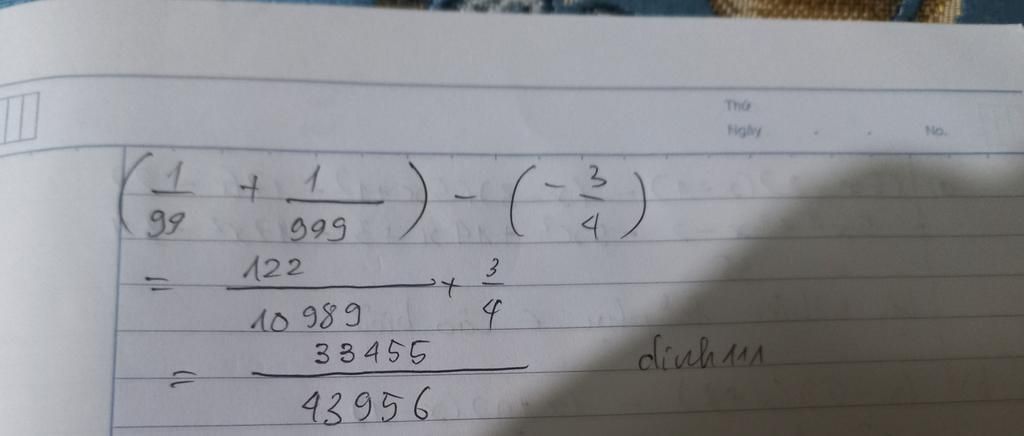 Thứ
Ngày . . No.
(1/99 + 1/999) - (-3/4)
= 122/10989 + 3/4
= 33455/43956 dinh111